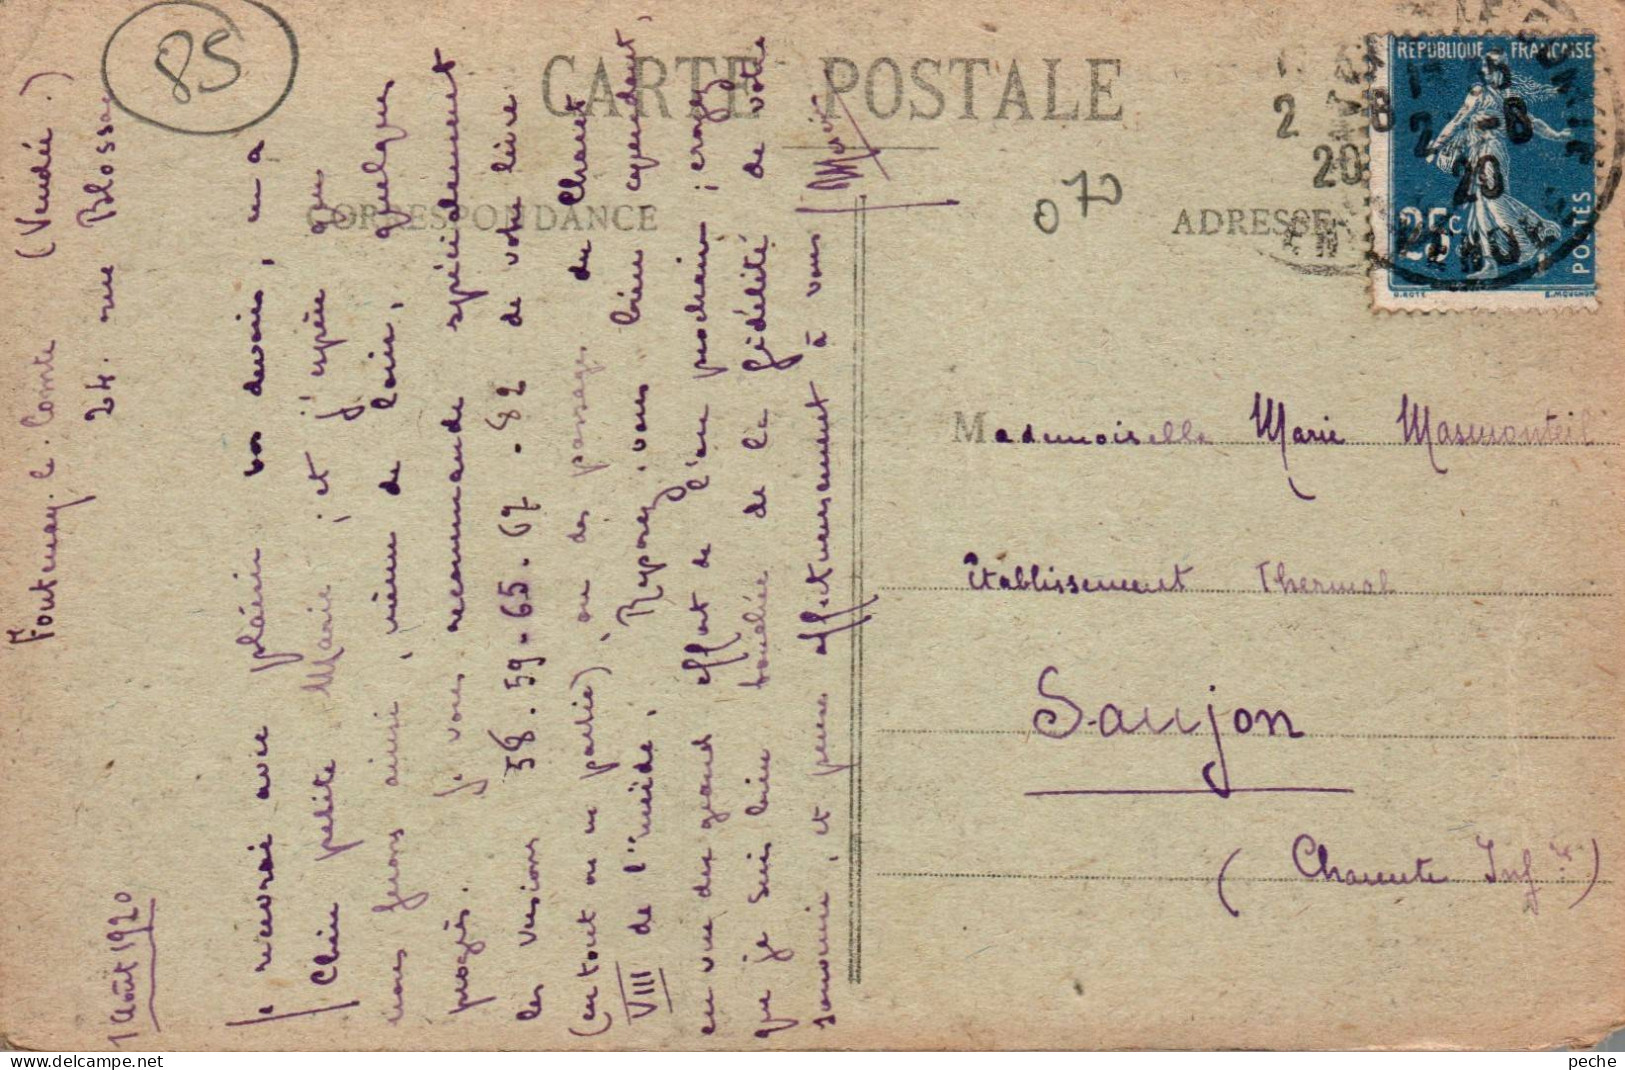 85
CARTE POSTALE
CORRESPONDANCE
ADRESSE
070
REPUBLIQUE FRANÇAISE
25c.
POSTES
O. ROTY
E. MOUCHON
2 8
20
2 -8
20
Fontenay-le-Comte (Vendée.)
24. rue Blossac
1 Août 1920
Je recevrai avec plaisir vos devoirs, ma
chère petite Marie ; et j'espère que
nous ferons ainsi, même de loin, quelques
progrès. Je vous recommande spécialement
les versions 58. 59. 65. 67. 82 de votre livre
(en tout ou en partie), ou des passages du Chant
VIII de l'Enéide. Reposez-vous bien cependant,
en vue du grand effort de l'an prochain ; croyez
que je suis bien touchée de la fidélité de votre
souvenir, et pense affectueusement à vous
Mademoiselle Marie Masmonteil
Etablissement Thermal
Saujon
(Charente Infre)
peche